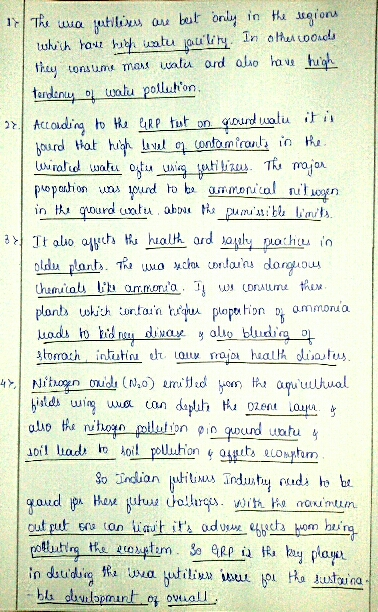 1) The urea fertilisers are best only in the regions
which have high water facility. In other woods
they consume more water and also have high
tendency of water pollution.
2) According to the GRP test on ground water it is
found that high level of contaminants in the
urinated water after using fertilizers. The major
propostion was found to be ammonical nitrogen
in the ground water. above the permissible limits.
3) It also affects the health and safety practices in
older plants. The urea sector contains dangerous
chemicals like ammonia. If we consume these
plants which contain higher propotion of ammonia
leads to kidney disease & also bleeding of
stomach, intestine etc cause major health disasters.
4) Nitrogen oxide (N2O) emitted from the agricultural
fields using urea can deplete the ozone layer. &
also the nitrogen pollution in ground water &
soil leads to soil pollution & affects ecosystem.
So Indian fertilisers Industry needs to be
geared for these future challenges. With the maximum
output one can limit it's adverse effects from being
polluting the ecosystem. So GRP is the key player
in deciding the urea fertilisers issue for the sustaina-
-ble development of overall.